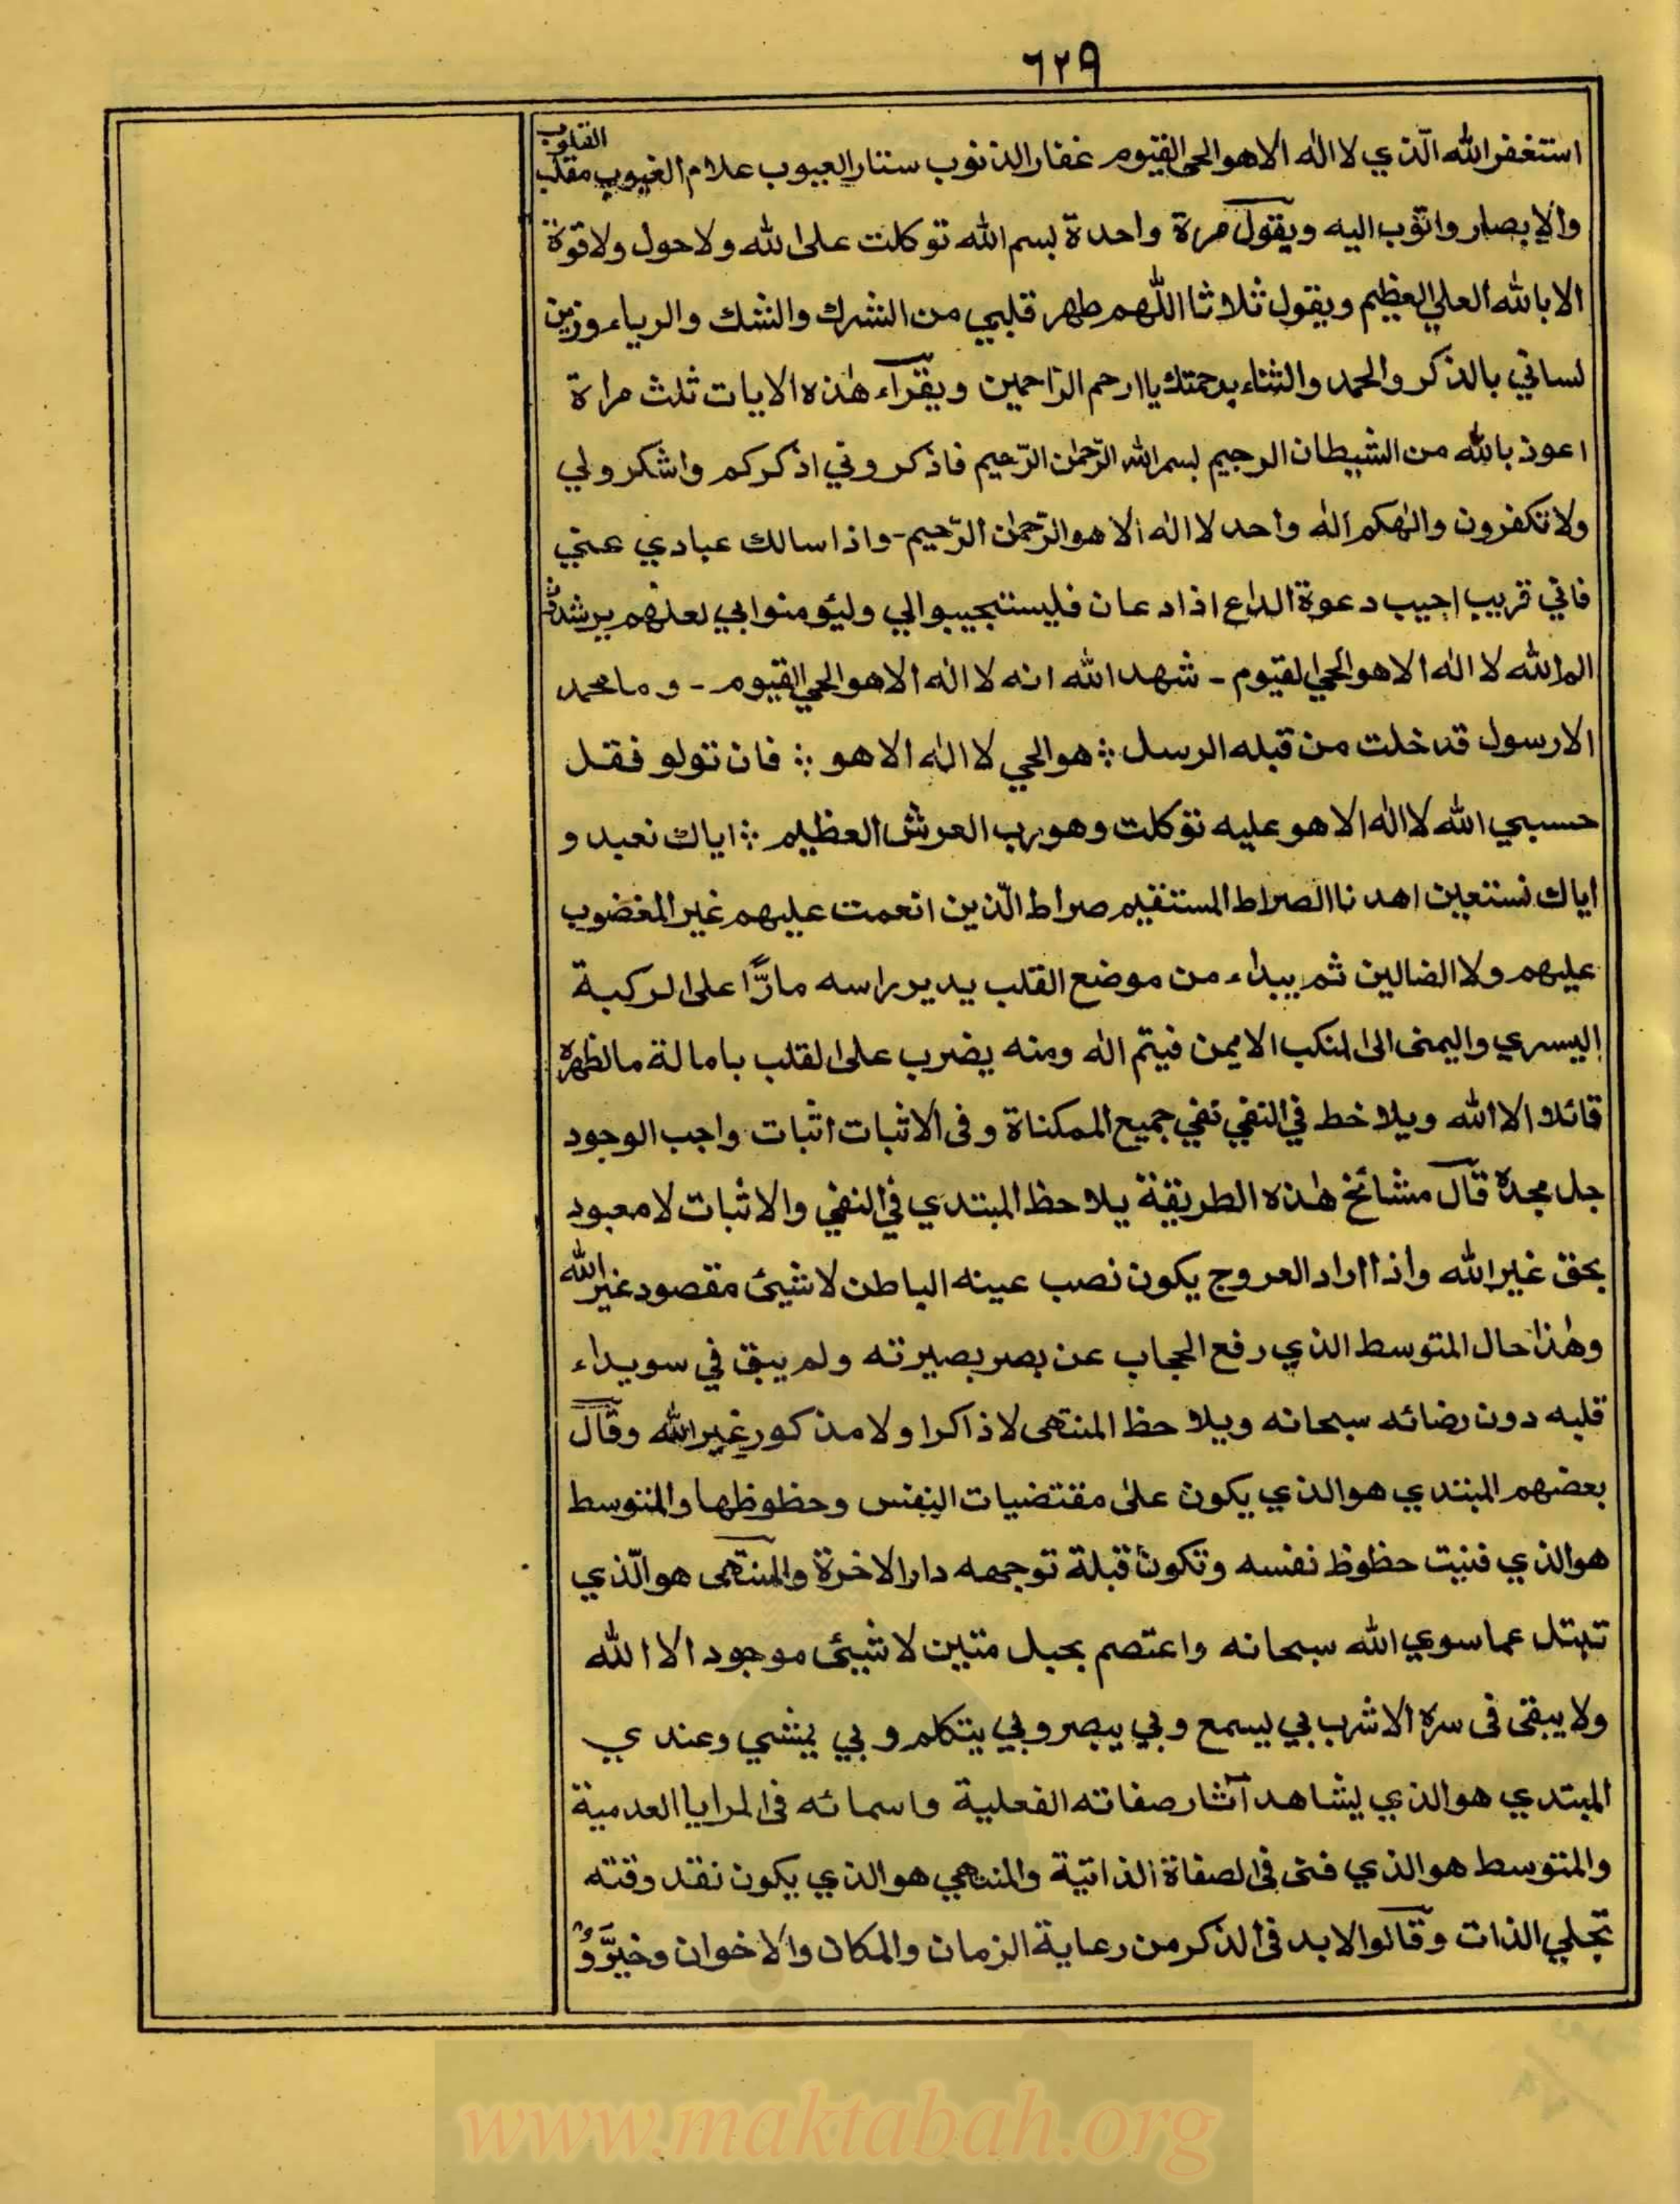 ٦٢٩
استغفر الله الّذي لا اله الا هو الحي القيوم غفار الذنوب ستار العيوب علام الغيوب مقلب القلوب
والابصار واتوب اليه ويقول مرة واحدة بسم الله توكلت على الله ولا حول ولا قوة
الا بالله العلي العظيم ويقول ثلاثا اللّهم طهر قلبي من الشرك والشك والرياء وزين
لساني بالذكر والحمد والثناء برحمتك يا ارحم الرّاحمين ويقراء هٰذه الايات ثلث مراة
اعوذ بالله من الشيطان الرجيم بسم الله الرّحمٰن الرّحيم فاذكروني اذكركم واشكرولي
ولا تكفرون والٰهكم اله واحد لا اله الا هو الرّحمٰن الرّحيم - واذا سالك عبادي عني
فاني قريب اجيب دعوة الداع اذا دعان فليستجيبوالي وليؤمنوابي لعلهم يرشدون
الم الله لا اله الا هو الحي القيوم - شهد الله انه لا اله الا هو الحي القيوم - وما محمد
الا رسول قد خلت من قبله الرسل ؞ هو الحي لا اله الا هو ؞ فان تولو فقل
حسبي الله لا اله الا هو عليه توكلت وهو رب العرش العظيم ؞ اياك نعبد و
اياك نستعين اهدنا الصراط المستقيم صراط الّذين انعمت عليهم غير المغضوب
عليهم ولا الضالين ثم يبداء من موضع القلب يدير راسه مارًّا على الركبة
اليسري واليمنى الى المنكب الايمن فيتم اله ومنه يضرب على القلب بامالة ما لظهره
قائلا الا الله ويلاحظ في النفي نفي جميع الممكناة وفى الاثبات اثبات واجب الوجود
جل مجده قال مشائخ هٰذه الطريقة يلاحظ المبتدي في النفي والاثبات لا معبود
بحق غير الله واذا اراد العروج يكون نصب عينه الباطن لا شيئ مقصود غير الله
وهٰذا حال المتوسط الذي رفع الحجاب عن بصر بصيرته ولم يبق في سويداء
قلبه دون رضائه سبحانه ويلاحظ المنتهى لا ذاكرا ولا مذكور غير الله وقال
بعضهم المبتدي هو الذي يكون على مقتضيات النفس وحظوظها والمتوسط
هو الذي فنيت حظوظ نفسه وتكون قبلة توجهه دار الاخرة والمنتهى هو الّذي
تبتل عما سوي الله سبحانه واعتصم بحبل متين لا شيئ موجود الا الله
ولا يبقى فى سره الا شرب بي يسمع وبي يبصر وبي يتكلم وبي يمشي وعندي
المبتدي هو الذي يشاهد آثار صفاته الفعلية واسمائه فى المرايا العدمية
والمتوسط هو الذي فنى في الصفاة الذاتية والمنتهي هو الذي يكون نقد وقته
تجلي الذات وقالوا لا بد فى الذكر من رعاية الزمان والمكان والاخوان وخيّروُ
www.maktabah.org